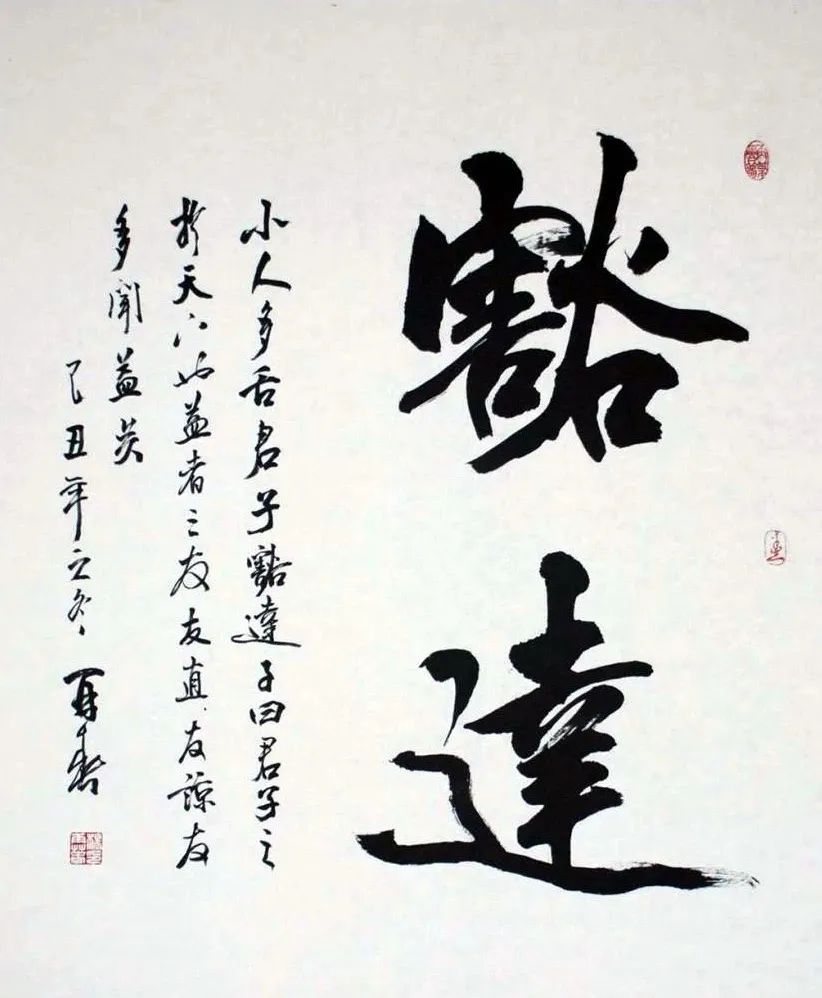 豁達
小人多舌君子豁達子曰君子之
於天下也益者三友友直友諒友
多聞益矣
己丑年之冬